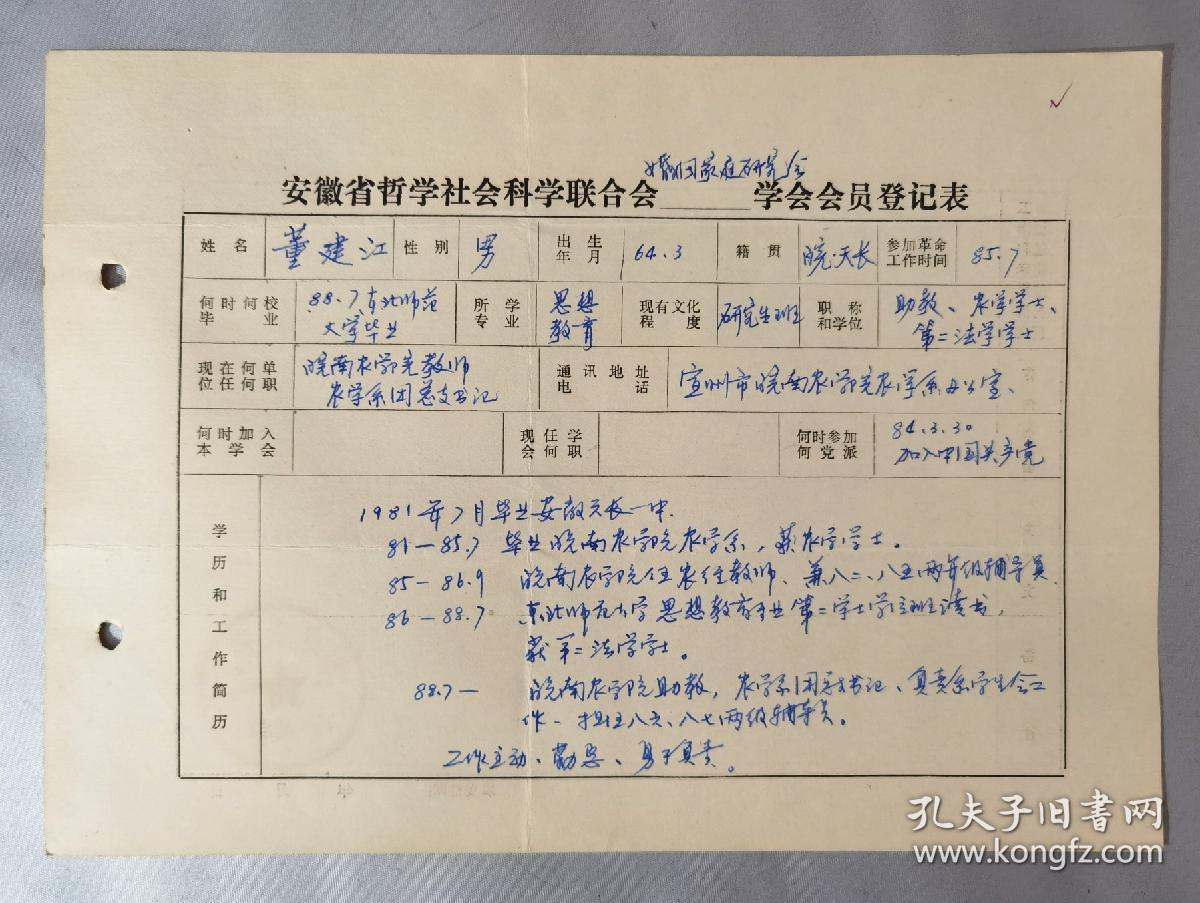 婚姻家庭研究会
安徽省哲学社会科学联合会______学会会员登记表
姓名 董建江 性别 男 出生年月 64.3 籍贯 皖·天长 参加革命工作时间 85.7
何时何校毕业 88.7东北师范大学毕业 所学专业 思想教育 现有文化程度 研究生班 职称和学位 助教、农学学士、第二法学学士
现在何单位任何职 皖南农学院教师 农学系团总支书记 通讯地址电话 宣州市皖南农学院农学系办公室、
何时加入本学会 现任学会何职 何时参加何党派 84.3.30 加入中国共产党
学历和工作简历
1981年7月毕业安徽天长一中.
81—85.7 毕业皖南农学院农学系，获农学学士。
85—86.9 皖南农学院任教师、兼八二、八五两年级辅导员
86—88.7 东北师范大学思想教育专业第二学士学位班读书，
获第二法学学士。
88.7— 皖南农学院助教，农学系团总支书记、负责系学生会工
作、担任八六、八七两级辅导员。
工作主动、勤恳、勇于负责。
孔夫子旧书网
www.kongfz.com